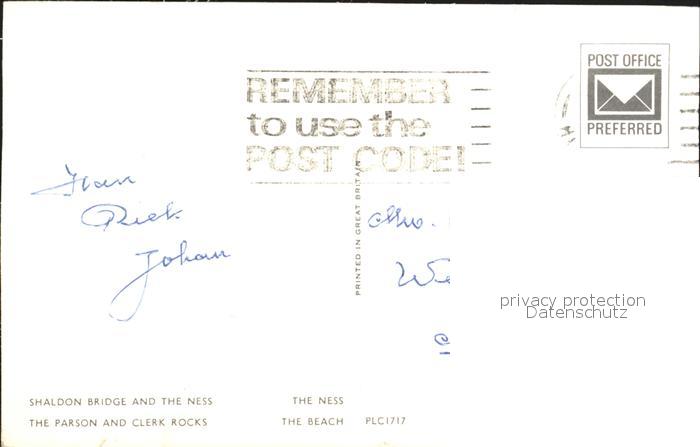 POST OFFICE
PREFERRED
REMEMBER
to use the
POST CODE!
PRINTED IN GREAT BRITAIN
Rick
Johan
privacy protection
Datenschutz
SHALDON BRIDGE AND THE NESS THE NESS
THE PARSON AND CLERK ROCKS THE BEACH PLC1717